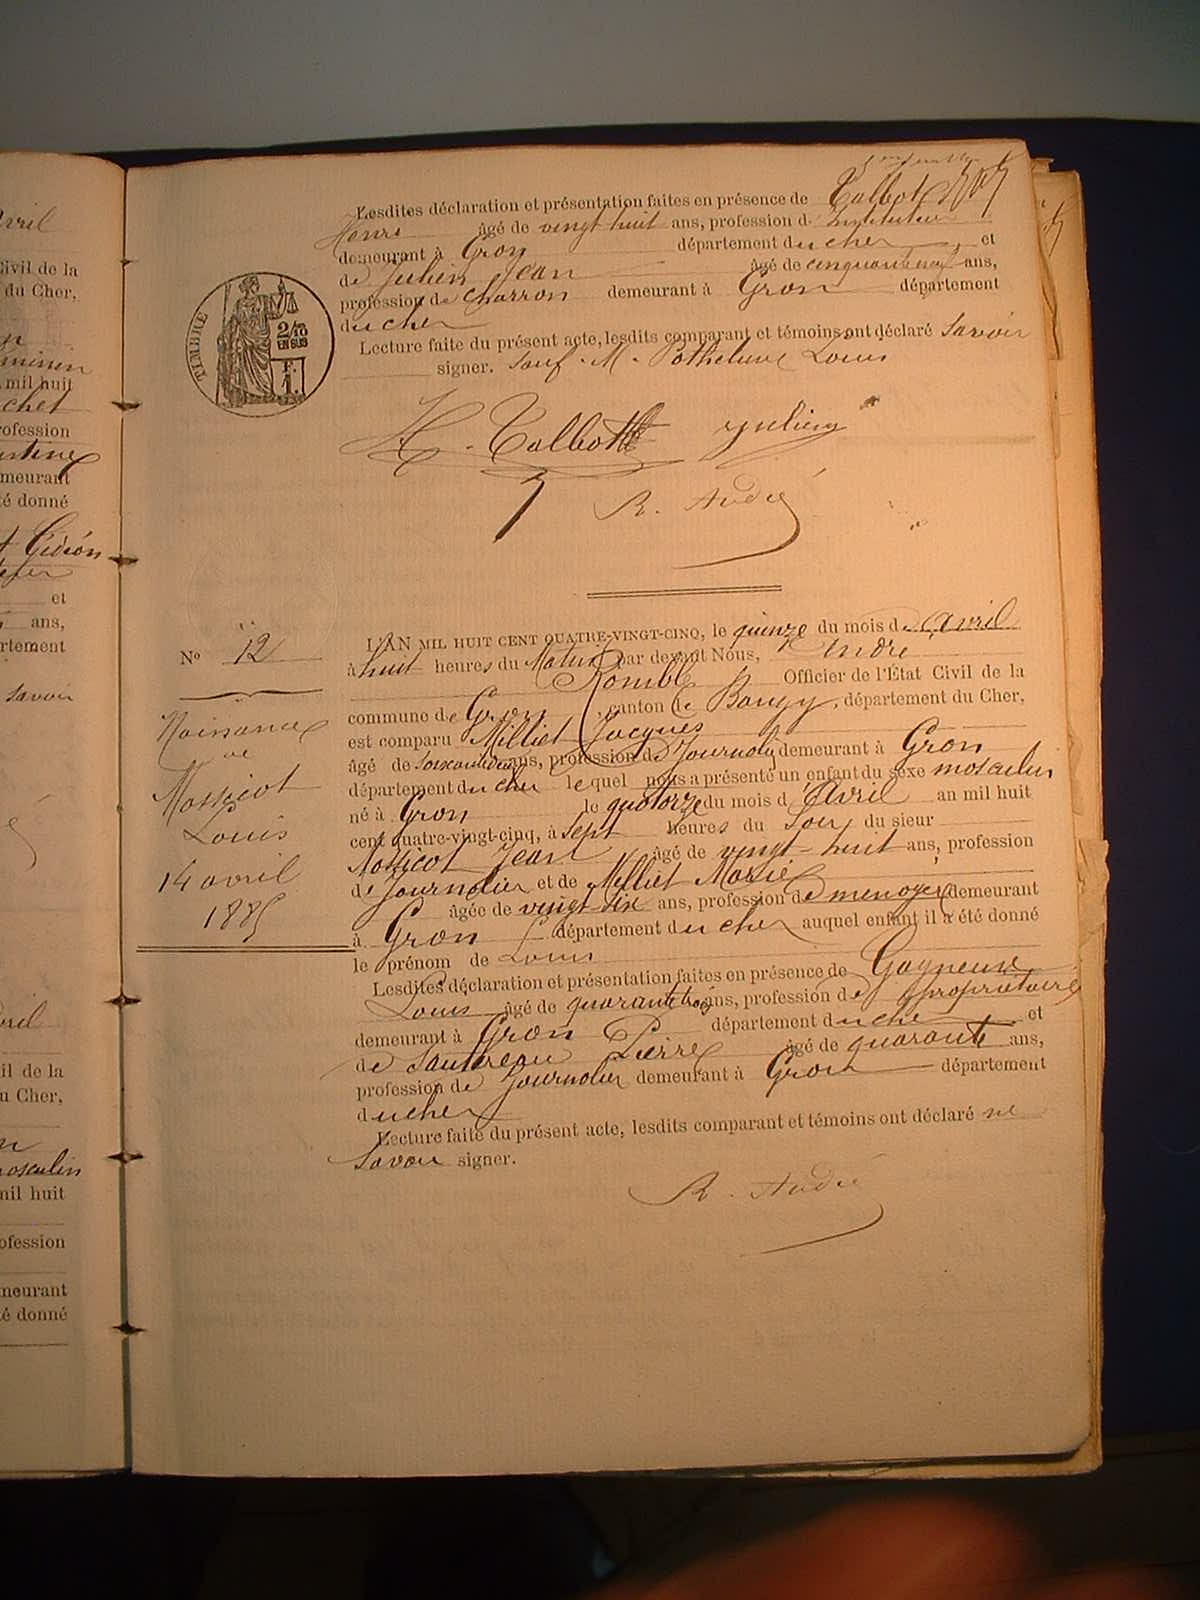 avril
Civil de la
du Cher,
mil huit
chet
rofession
meurant
té donné
Gédéon
et
ans,
rtement
savoir
il de la
u Cher,
masculin
mil huit
ofession
meurant
té donné
505
Lesdites déclaration et présentation faites en présence de Talbot
Henri âgé de vingt huit ans, profession d' Instituteur
demeurant à Gron département du cher et
de Julien Jean âgé de cinquante neuf ans,
profession de charron demeurant à Gron département
du cher
Lecture faite du présent acte, lesdits comparant et témoins ont déclaré savoir
signer. sauf M. Louis
TIMBRE
2/10
EN SUS
F.
1.
H. Talbot Julien
R. André
No 12
Naissance
de
Massicot
Louis
14 avril
1885
L'AN MIL HUIT CENT QUATRE-VINGT-CINQ, le quinze du mois d' Avril
à huit heures du Matin par devant Nous, André
Romble Officier de l'État Civil de la
commune de Gron canton de Baugy, département du Cher,
est comparu Milliet Jacques
âgé de soixante deux ans, profession de Journalier demeurant à Gron
département du cher lequel nous a présenté un enfant du sexe masculin
né à Gron le quatorze du mois d' Avril an mil huit
cent quatre-vingt-cinq, à sept heures du Soir du sieur
Massicot Jean âgé de vingt-huit ans, profession
de Journalier et de Milliet Marie
âgée de vingt six ans, profession de menagère demeurant
à Gron département du cher auquel enfant il a été donné
le prénom de Louis
Lesdites déclaration et présentation faites en présence de Gagneux
Louis âgé de quarante trois ans, profession de propriétaire
demeurant à Gron département du cher et
de Sautereau Pierre âgé de quarante ans,
profession de Journalier demeurant à Gron département
du cher
Lecture faite du présent acte, lesdits comparant et témoins ont déclaré ne
savoir signer.
R. André